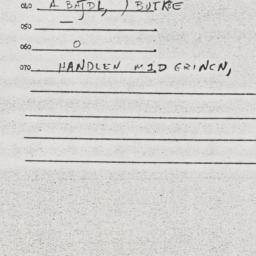 040 A BAJDL, J BUTKE
050 —
060 0
070 HANDLEN MID GRINCN,